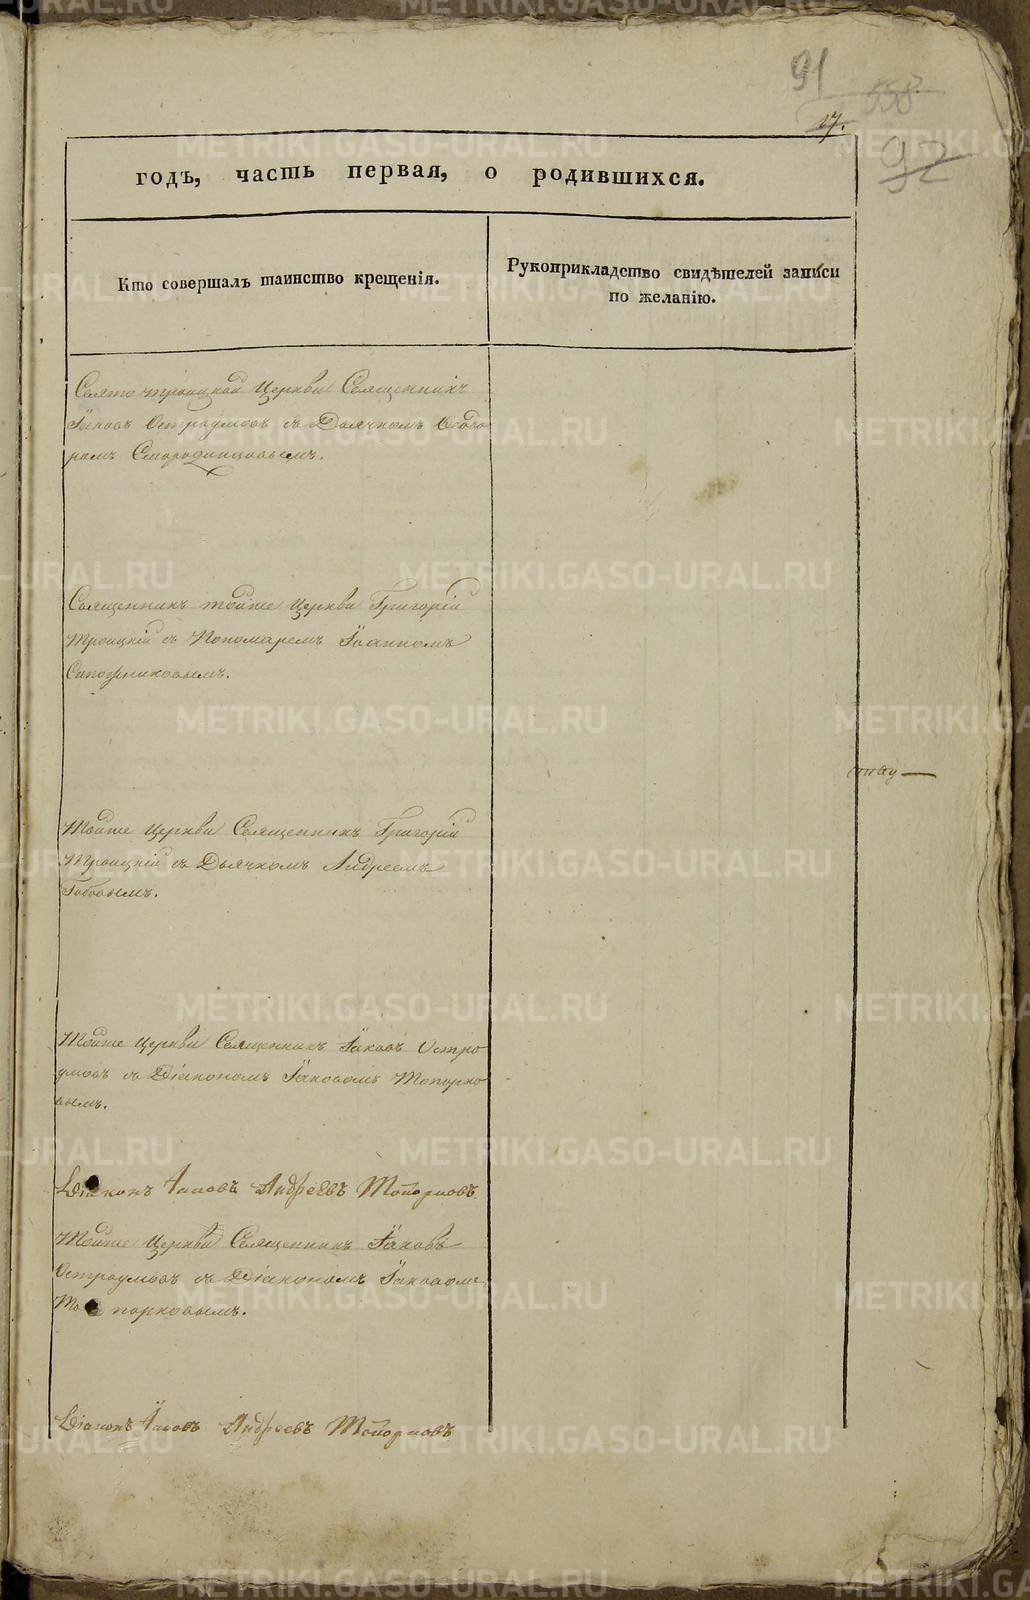 91
558
17.
92
годъ, часть первая, о родившихся.
Кто совершалъ таинство крещенія.
Рукоприкладство свидѣтелей записи
по желанію.
Свято троицкой Церкви Священникъ
Іаковъ Остроумовъ съ Дьячкомъ Ѳеодо
ромъ Смородинцовымъ.
Священникъ тойже Церкви Григорій
Троицкій съ Пономаремъ Іоанномъ
Сапожниковымъ.
Тойже Церкви Священникъ Григорій
Троицкій съ Дьячкомъ Андреемъ
Тойже Церкви Священникъ Іаковъ Остро
умовъ съ Діакономъ Іаковомъ Топорко
вымъ.
Діаконъ Іаковъ Андреевъ Топорковъ
Тойже Церкви Священникъ Іаковъ
Остроумовъ съ Діакономъ Іаковомъ
То порковымъ.
Діаконъ Іаковъ Андреевъ Топорковъ
METRIKI.GASO-URAL.RU